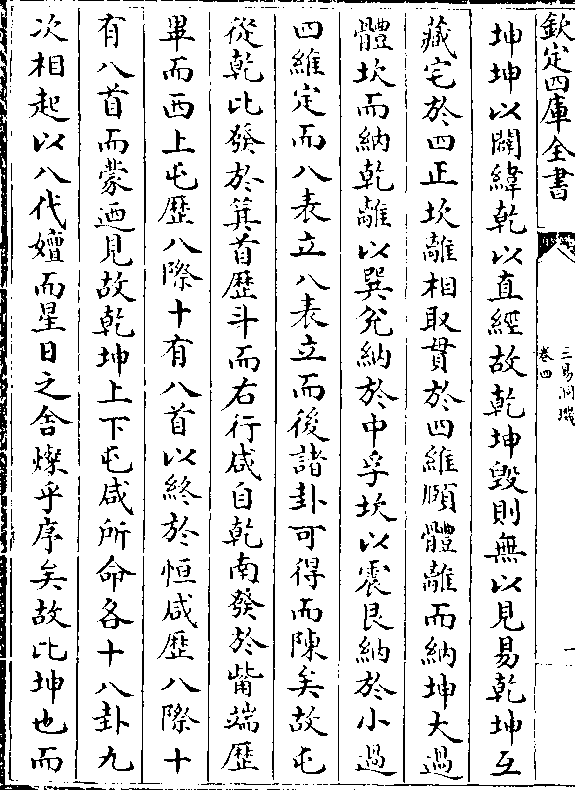 欽定四庫全書
三易洞璣
卷四
一
坤坤以闢緯乾以直經故乾坤毀則無以見易乾坤互
藏宅於四正坎離相取貫於四維頤體離而納坤大過
體坎而納乾離以巽兌納於中孚坎以震艮納於小過
四維定而八表立八表立而後諸卦可得而陳矣故屯
從乾北發於箕首歷斗而右行咸自乾南發於觜端歷
畢而西上屯歷八際十有八首以終於恒咸歷八際十
有八首而蒙迺見故乾坤上下屯咸所命各十八卦九
次相起以八代嬗而星日之舍燦乎序矣故比坤也而